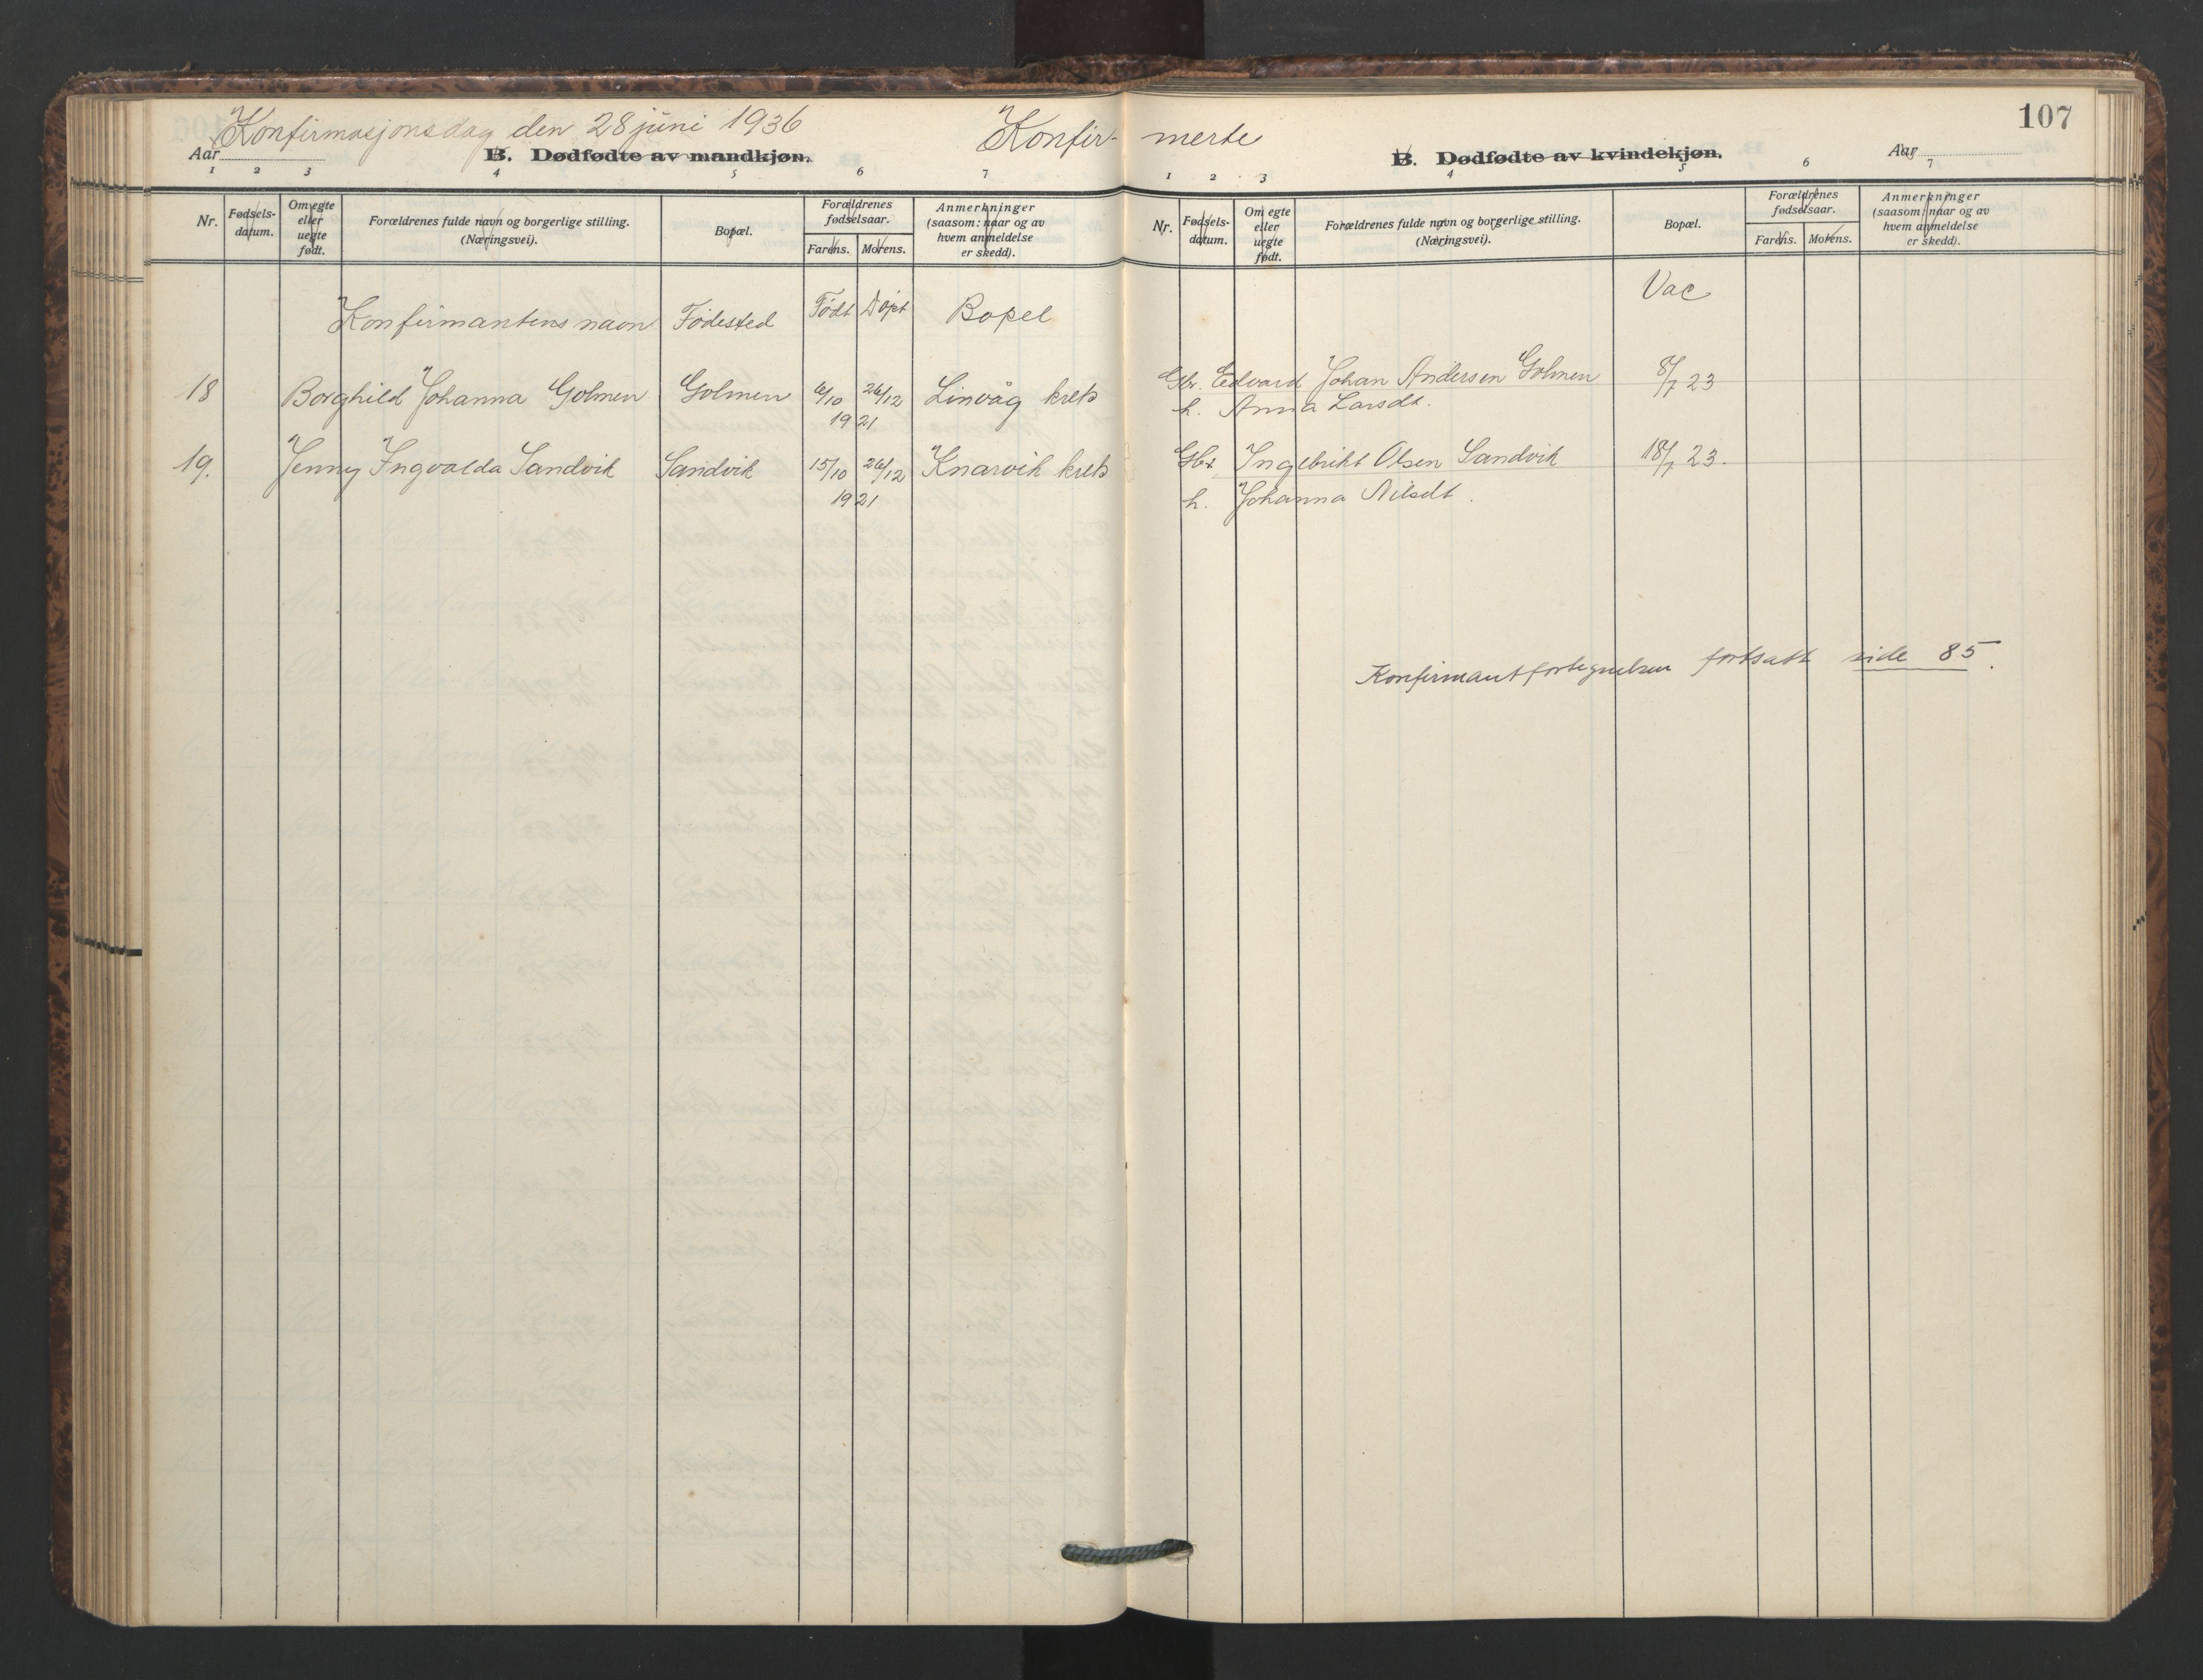 107
Konfirmasjonsdag den 28 juni 1936 Konfir- merte
Aar B. Dødfødte av mandkjøn.
B. Dødfødte av kvindekjøn. Aar
1 2 3 4 5 6 7
1 2 3 4 5 6 7
Nr. Fødsels-datum. Om egte eller uegte født. Forældrenes fulde navn og borgerlige stilling. (Næringsvei). Bopæl. Forældrenes fødselsaar. Farens. Morens. Anmerkninger (saasom: naar og av hvem anmeldelse er skedd).
Nr. Fødsels-datum. Om egte eller uegte født. Forældrenes fulde navn og borgerlige stilling. (Næringsvei). Bopæl. Forældrenes fødselsaar. Farens. Morens. Anmerkninger (saasom: naar og av hvem anmeldelse er skedd).
Konfirmantens navn Fødested Født Døpt Bopel Vac
18 Borghild Johanna Golmen Golmen 6/10 26/12 Linvåg krets Gbr. Edvard Johan Andersen Golmen 8/7 23
1921 h. Anna Larsdt.
19. Jenny Ingvalda Sandvik Sandvik 15/10 26/12 Knarvik krets Gbr. Ingebrikt Olsen Sandvik 18/7 23.
1921 h. Johanna Nilsdt.
Konfirmantfortegnelsen fortsatt side 85.